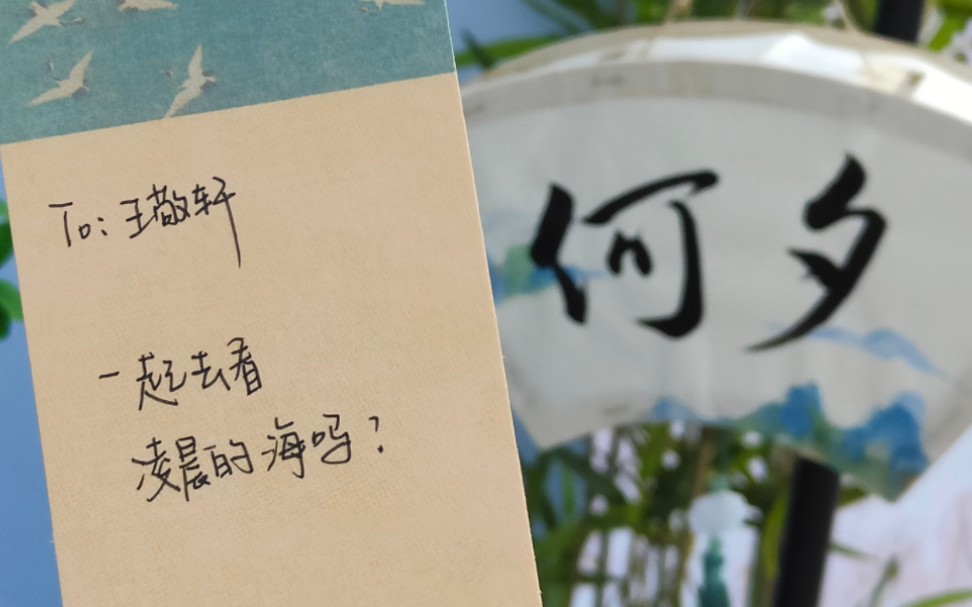 To: 王敬轩
一起去看
凌晨的海吗?
何夕